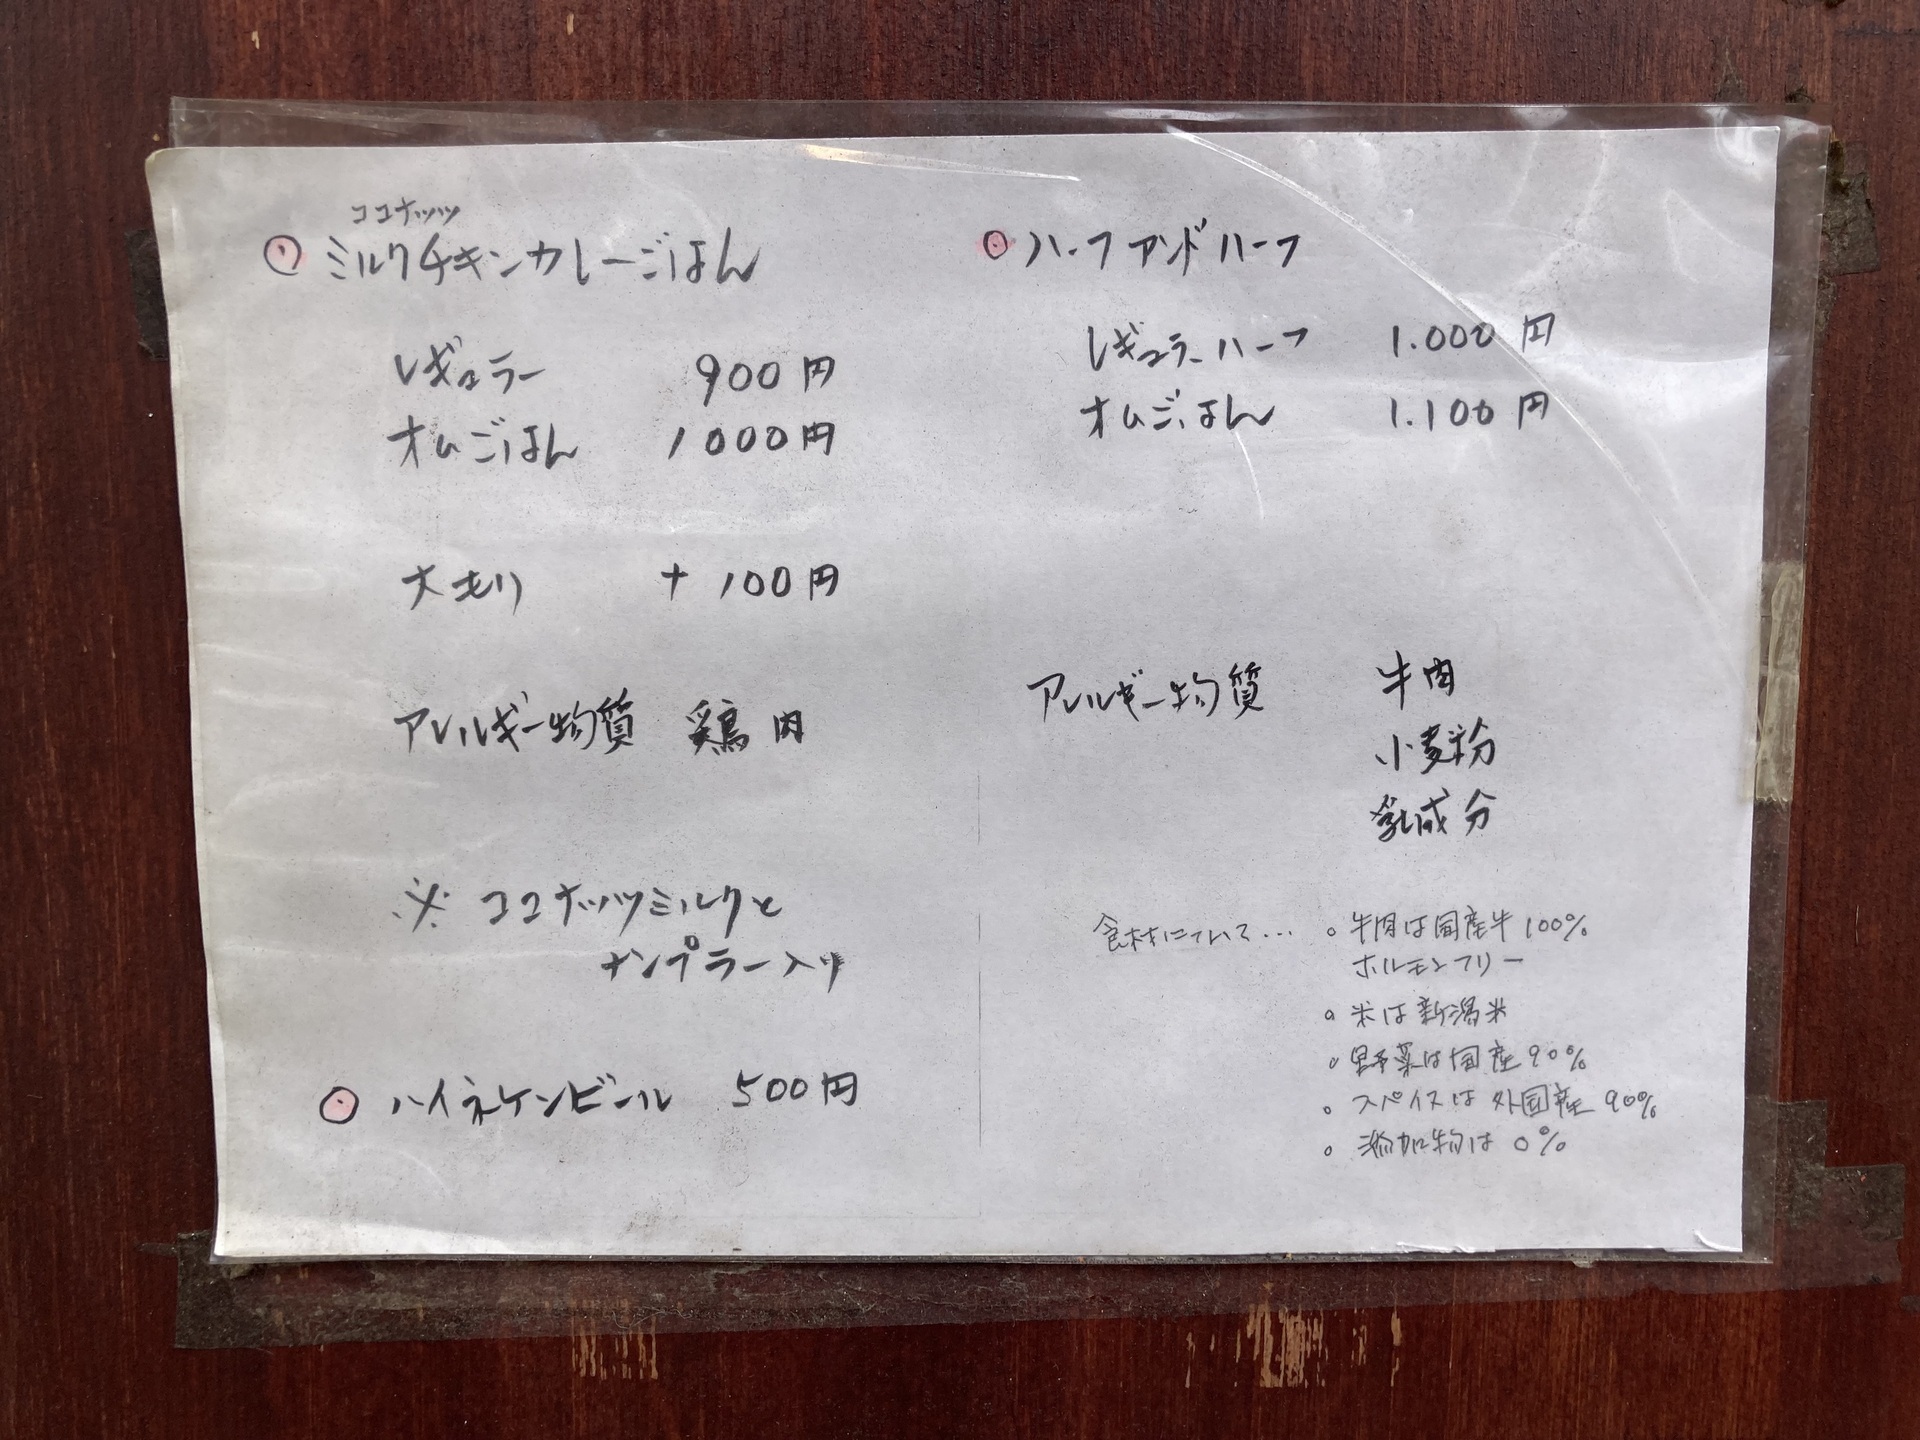 ココナッツ
ミルクチキンカレーごはん
レギュラー 900円
オムごはん 1000円
大もり + 100円
アレルギー物質 鶏肉
※ ココナッツミルクと
ナンプラー入り
ハイネケンビール 500円
ハーフアンドハーフ
レギュラーハーフ 1.000円
オムごはん 1.100円
アレルギー物質 牛肉
小麦粉
乳成分
食材について… 。牛肉は国産牛100%
ホルモンフリー
。米は新潟米
。野菜は国産90%
。スパイスは外国産90%
。添加物は0%